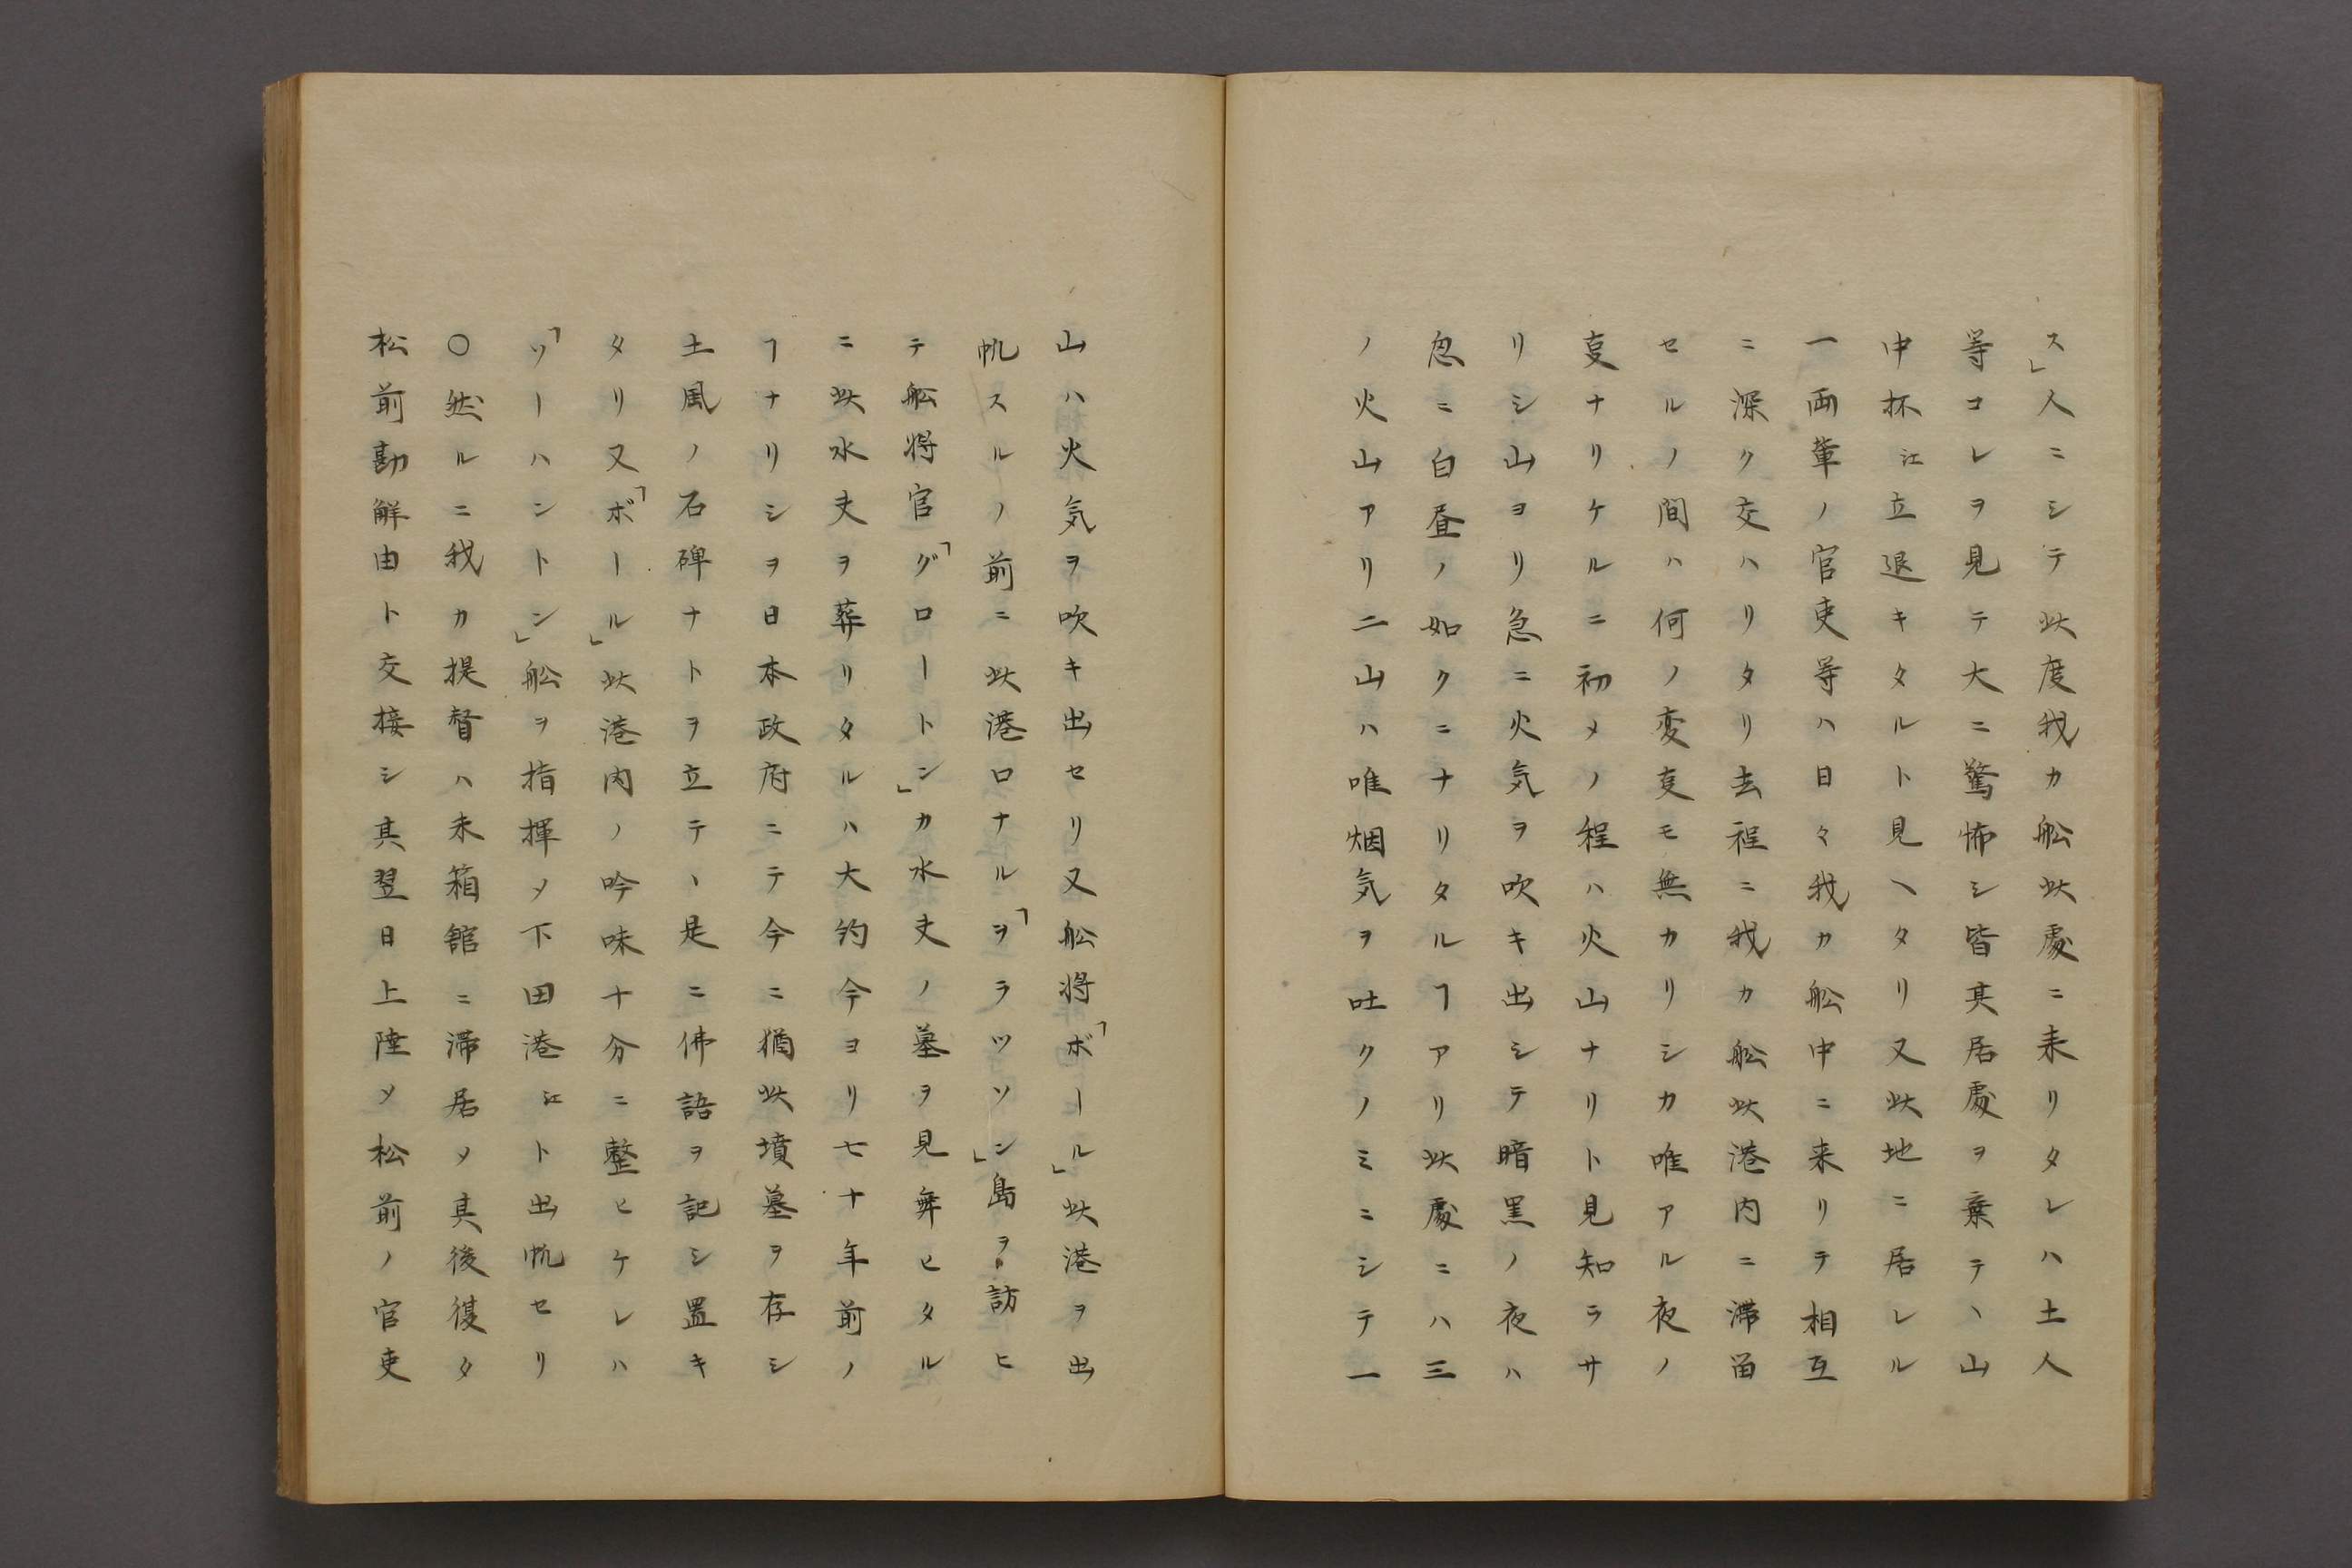 ス」人ニシテ此度我カ舩此處ニ来リタレハ土人
等コレヲ見テ大ニ驚怖シ皆其居處ヲ棄テヽ山
中杯江立退キタルト見ヘタリ又此地ニ居レル
一両輩ノ官吏等ハ日々我カ舩中ニ来リテ相互
ニ深ク交ハリタリ去程ニ我カ舩此港内ニ滞畄
セルノ間ハ何ノ変㕝モ無カリシカ唯アル夜ノ
㕝ナリケルニ初メノ程ハ火山ナリト見知ラサ
リシ山ヨリ急ニ火気ヲ吹キ出シテ暗黒ノ夜ハ
忽ニ白昼ノ如クニナリタルヿアリ此處ニハ三
ノ火山アリ二山ハ唯烟気ヲ吐クノミニシテ一
山ハ火気ヲ吹キ出セリ又舩将「ボール」此港ヲ出
帆スルノ前ニ此港口ナル「ヲラツソン」島ヲ訪ヒ
テ舩将官「グロートン」カ水夫ノ墓ヲ見舞ヒタル
ニ此水夫ヲ葬リタルハ大約今ヨリ七十年前ノ
ヿナリシヲ日本政府ニテ今ニ猶此墳墓ヲ存シ
土風ノ石碑ナトヲ立テヽ是ニ佛語ヲ記シ置キ
タリ又「ボール」此港内ノ吟味十分ニ整ヒケレハ
「ソーハントン」舩ヲ指揮〆下田港江ト出帆セリ
○然ルニ我カ提督ハ未箱舘ニ滞居〆其後復タ
松前勘解由ト交接シ其翌日上陸〆松前ノ官吏